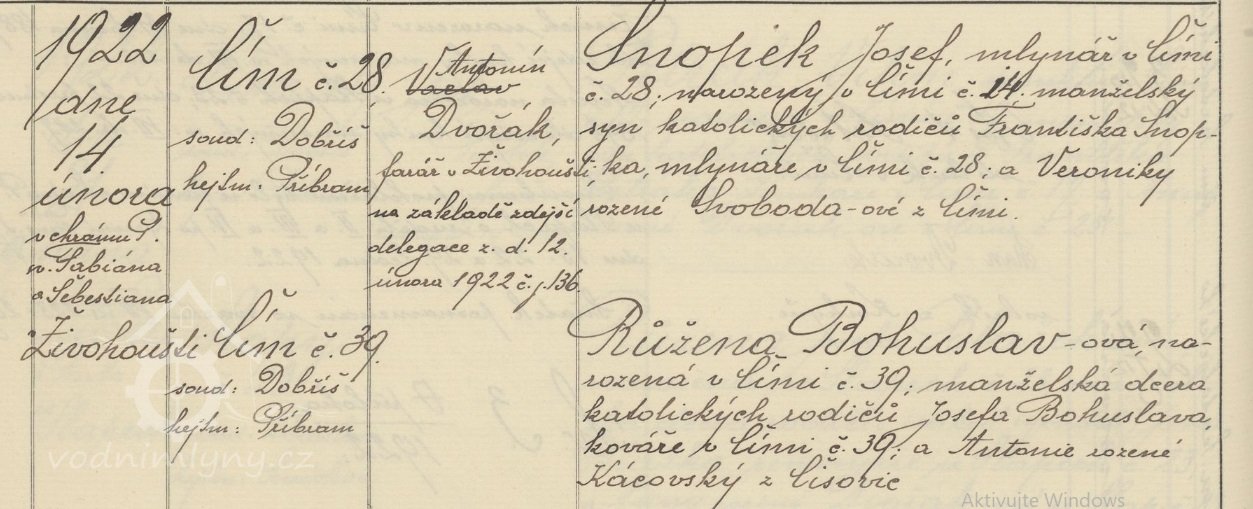 1922
dne
14
února
v chrámu P.
sv. Fabiána
a Šebestiana
Živohošti
Čím č. 28.
soud: Dobříš
hejtm: Příbram
Čím č. 39.
soud: Dobříš
hejtm: Příbram
Antonín
Václav
Dvořák,
farář v Živohošti,
na základě zdejší
delegace z. d. 12.
února 1922 č. j. 136.
Snopek Josef, mlynář v Čími
č. 28; narozený v Čími č. 24; manželský
syn katolických rodičů Františka Snop-
ka, mlynáře v Čími č. 28; a Veroniky
rozené Svoboda-ové z Čími.
Růžena Bohuslav-ová, na-
rozená v Čími č. 39; manželská dcera
katolických rodičů Josefa Bohuslava,
kováře v Čími č. 39; a Antonie rozené
Kácovský z Čisovic
vodnimlyny.cz
Aktivujte Windows